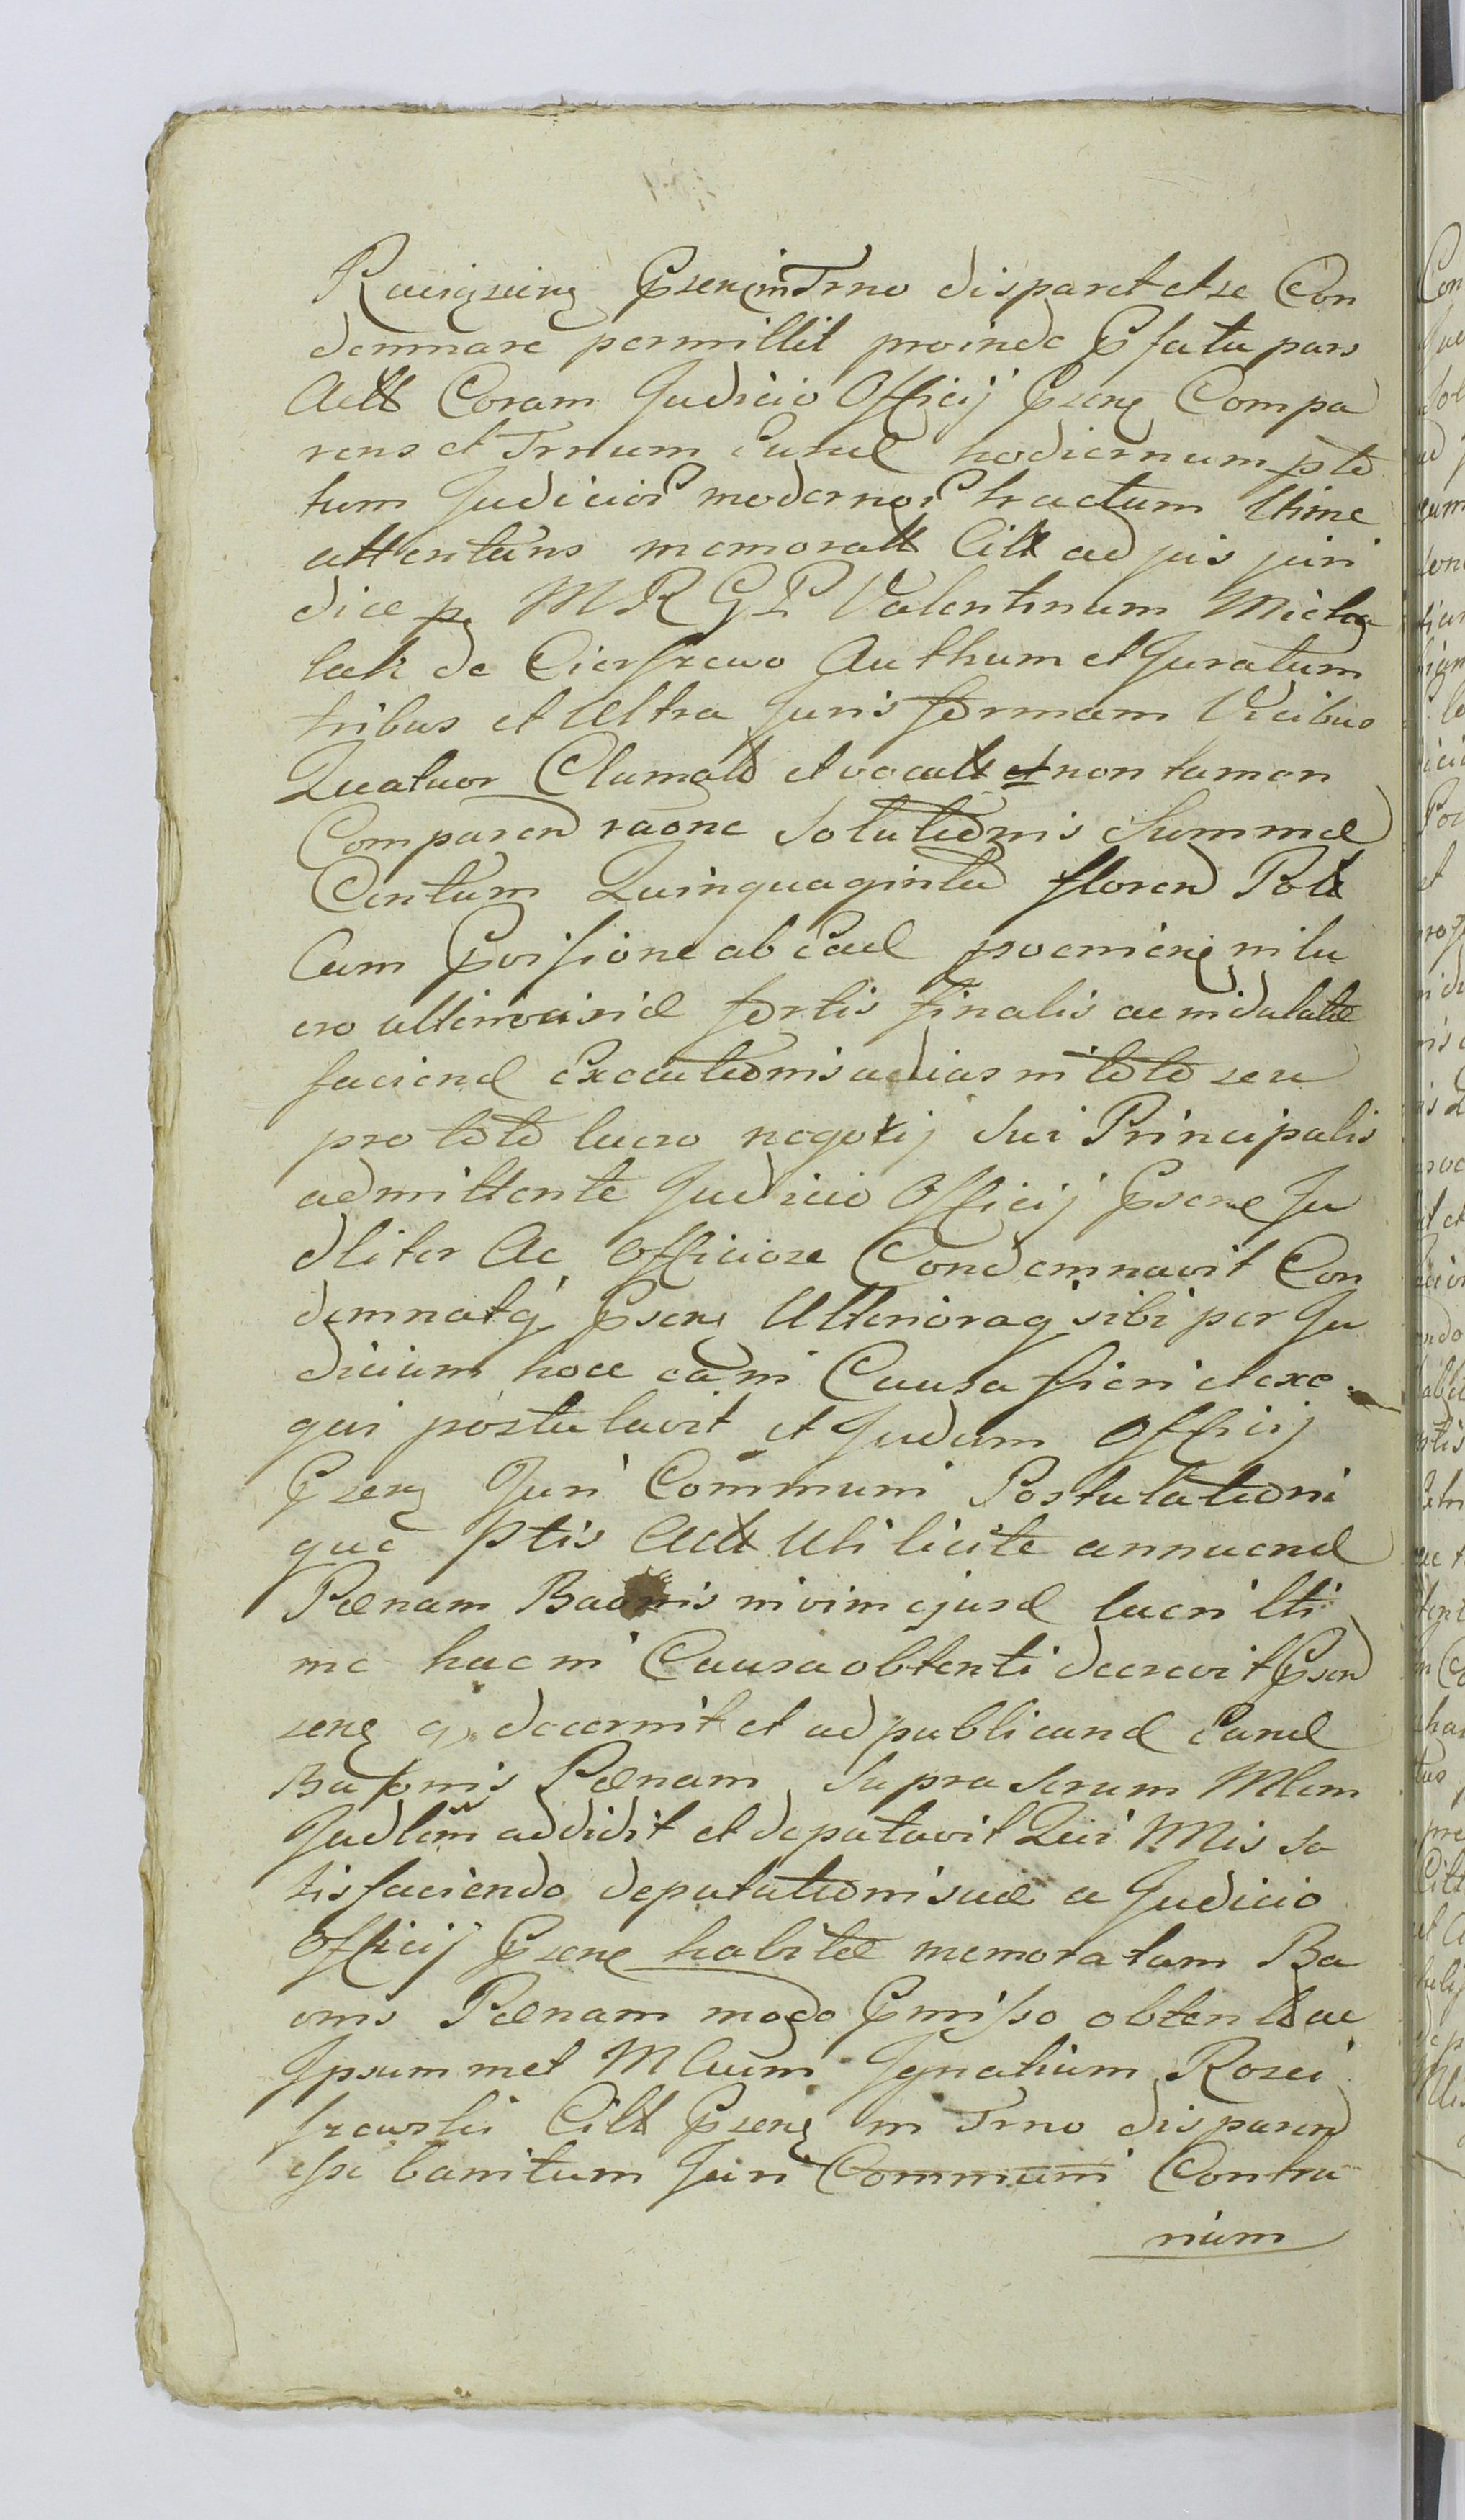 Pserig in Trno disparet et se Con
demnare permittit proinde Pfata pars
Actt Coram Judicio Officij Psens Compa
rens et Trnum Eund hodiernum pto
tum Judicior modernor tractum ltime
attentans memoratt Citt ad jus juri
dice p MRGP Valentinum Micha
lak de Cierszewo Authum et Juratum
tribus et Ultra Juris formam Vicibus
Quatuor Clamatt et vocatt et non tamen
Comparen raone Solutionis Summæ
Centum Quinquaginta floren Poll
Cum Provisione ab Ead in lu
cro ulterioris sortis finalis
faciend Executionis ad jus in toto seu
pro toto lucro negotij Sui Principalis
admittente Judicio Officij Psens Ju
dliter Ac Officiose Condemnavit Con
demnatq Psens Ulterioraq sibi per Ju
dicium hocce ea in Causa fieri et exe
qui postulavit et Judum Officij
Psens Juri Communi Postulationi
que Ptis Actt Uti licite annuend
Pænam Baonis in vim ejusd lucri lti
me hac in Causa obtenti decrevit Psen
q decernit et ad publicand Eand
Banonis Pænam Suprascrum Mlem
Judlem addidit et deputavit Qui Mis Sa
tisfaciendo deputationi suæ a Judicio
Officij Psens habitæ memoratam Ba
onis Pænam modo Pmisso obtent ac
Ipsummet Mlcum Ignatium Rosci
szewski Citt Psens in Trno disparen
esse banitum Juri Communi Contra
rium